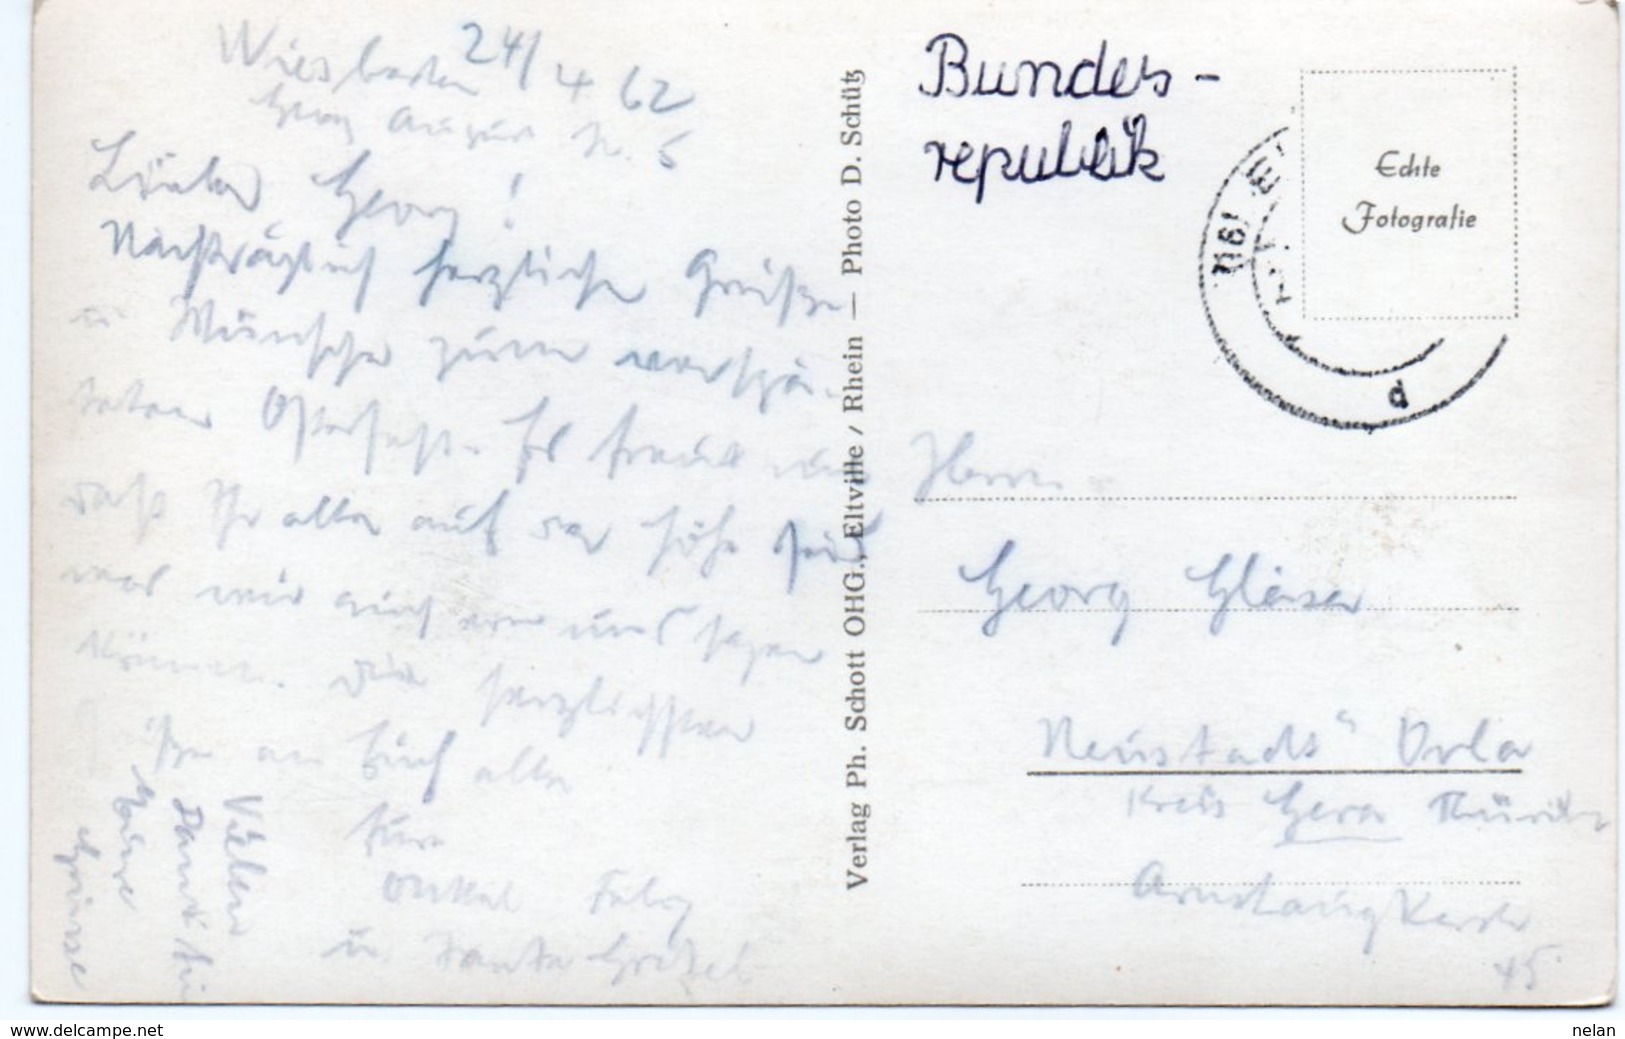 Wiesbaden 24/4 62
Georg August 5
Lieber Georg!
Nachträglich herzliche Grüße
u Wünsche zum verspä-
teten Osterfest. Es freut uns
daß Ihr alle auf der Höhe seid
was wir auch von uns sagen
können. Die herzlichsten
an Euch alle
Eure
Onkel
u. Tante Gretel
Vielen
Dank für
Eure
Grüsse
Verlag Ph. Schott OHG., Eltville / Rhein — Photo D. Schütz
Bundes-
republik
Echte
Fotografie
d
Herrn
Georg Gläser
Neustadt Orla
Kreis Gera Thüring
45
www.delcampe.net
nelan